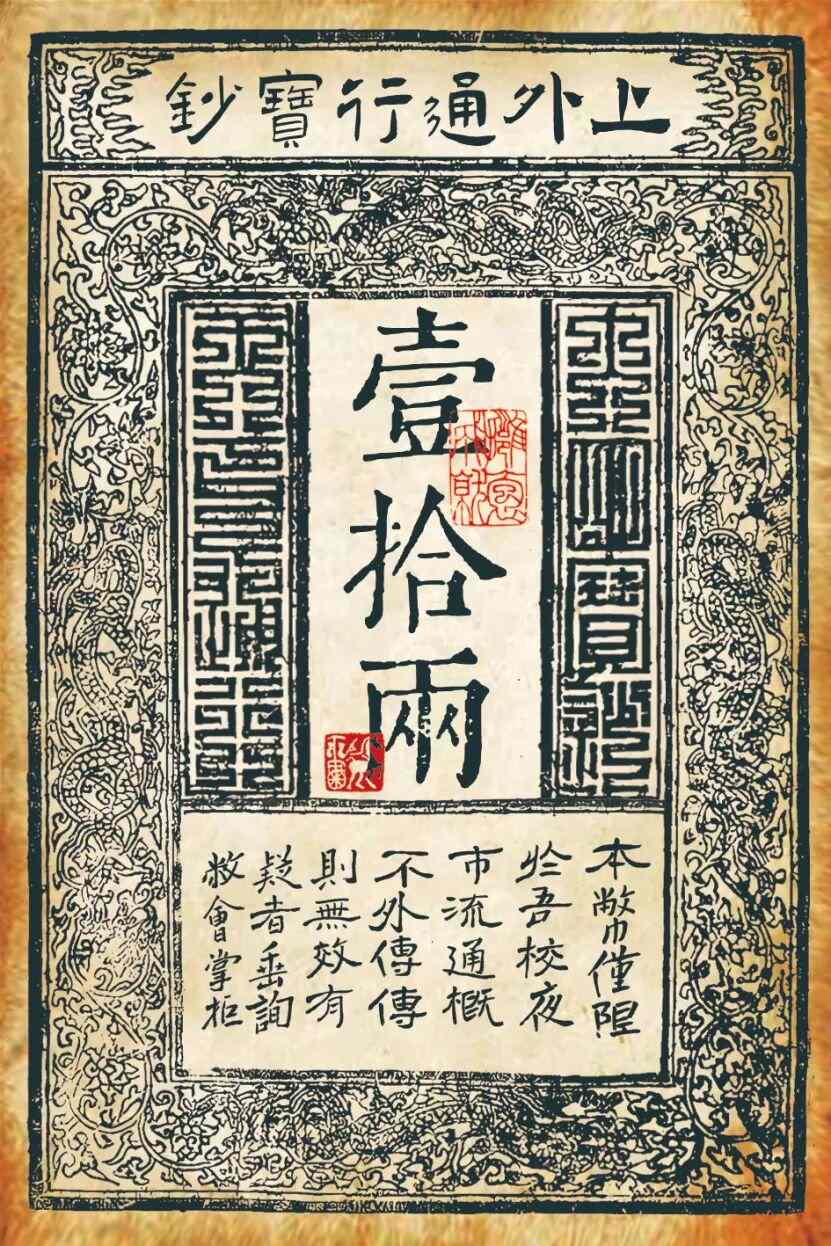 上外通行寶鈔
壹拾兩
本幣僅限
於吾校夜
市流通概
不外傳傳
則無效有
疑者垂詢
敝會掌柜